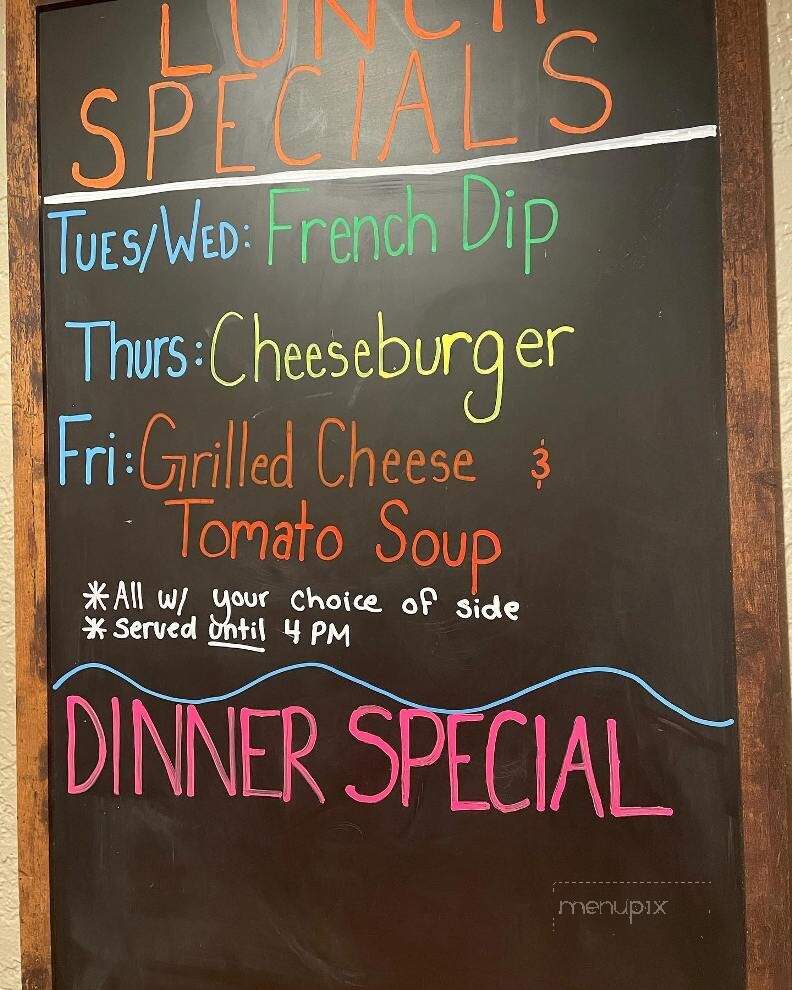 LUNCH
SPECIALS
TUES/WED: French Dip
Thurs: Cheeseburger
Fri: Grilled Cheese &
Tomato Soup
*All w/ your choice of side
*Served until 4 PM
DINNER SPECIAL
menupix